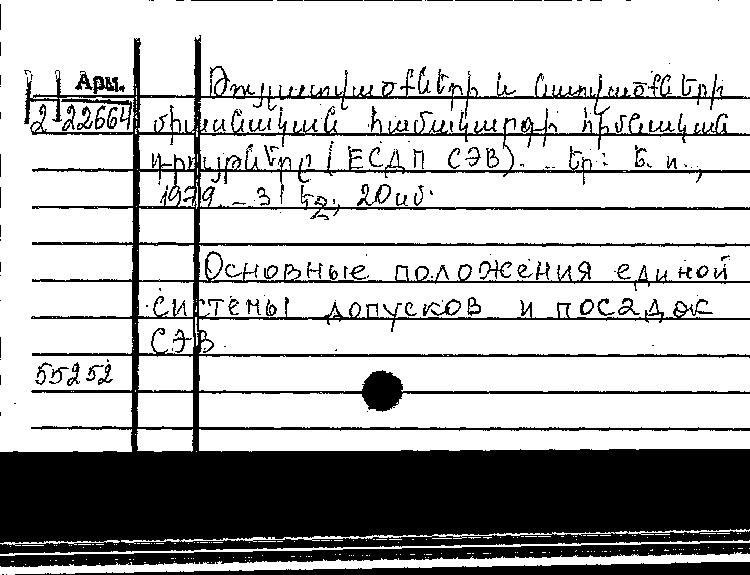 Арм.
Թույլատվածքների և նստվածքների
2 22664 միասնական համակարգի հիմնական
դրույթները (ЕСДП СЭВ). Եր.:
1979. - 31 եջ, 20 սմ.
Основные положения единой
системы допусков и посадок
СЭВ
55252